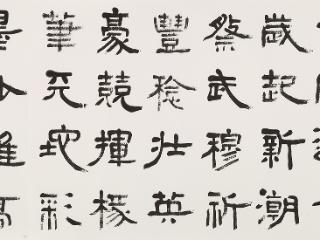 歲起新潮
祭武穆祈
豐稔壯英
豪競揮椽
筆天地彩